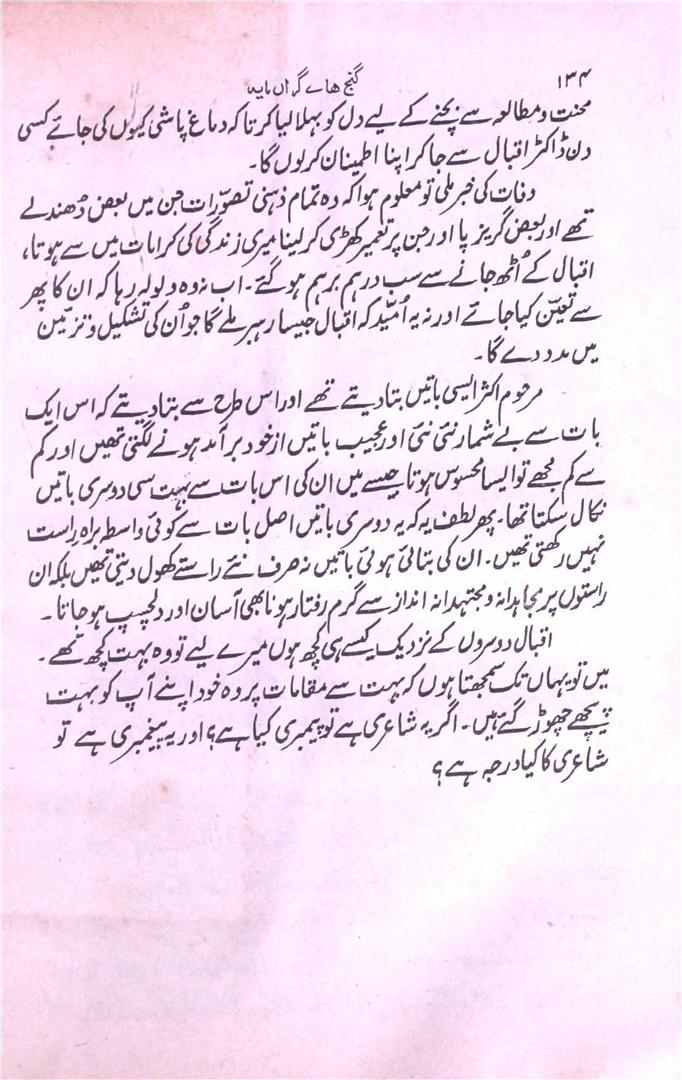 ۱۳۴
گنج ھاے گراں مایہ
محنت و مطالعہ سے بچنے کے لیے دل کو بہلا لیا کرتا کہ دماغ پاشی کیوں کی جائے کسی
دن ڈاکٹر اقبال سے جا کر اپنا اطمینان کر لوں گا۔
وفات کی خبر ملی تو معلوم ہوا کہ وہ تمام ذہنی تصوّرات جن میں بعض دُھندلے
تھے اور بعض گریز پا اور جن پر تعمیر کھڑی کر لینا میری زندگی کی کرامات میں سے ہوتا،
اقبال کے اُٹھ جانے سے سب درہم برہم ہو گئے۔ اب نہ وہ ولولہ رہا کہ ان کا پھر
سے تعیّن کیا جائے اور نہ یہ اُمّید کہ اقبال جیسا رہبر ملے گا جو اُن کی تشکیل و تزئین
میں مدد دے گا۔
مرحوم اکثر ایسی باتیں بتا دیتے تھے اور اس طرح سے بتا دیتے کہ اس ایک
بات سے بے شمار نئی نئی اور عجیب باتیں از خود برآمد ہونے لگتی تھیں اور کم
سے کم مجھے تو ایسا محسوس ہوتا جیسے میں ان کی اس بات سے بہت سی دوسری باتیں
نکال سکتا تھا۔ پھر لطف یہ کہ یہ دوسری باتیں اصل بات سے کوئی واسطہ براہ راست
نہیں رکھتی تھیں۔ ان کی بتائی ہوئی باتیں نہ صرف نئے راستے کھول دیتی تھیں بلکہ ان
راستوں پر مجاہدانہ و مجتہدانہ انداز سے گرم رفتار ہونا بھی آسان اور دلچسپ ہو جاتا۔
اقبال دوسروں کے نزدیک کیسے ہی کچھ ہوں میرے لیے تو وہ بہت کچھ تھے۔
میں تو یہاں تک سمجھتا ہوں کہ بہت سے مقامات پر وہ خود اپنے آپ کو بہت
پیچھے چھوڑ گئے ہیں۔ اگر یہ شاعری ہے تو پیمبری کیا ہے؟ اور یہ پیغمبری ہے تو
شاعری کا کیا درجہ ہے؟